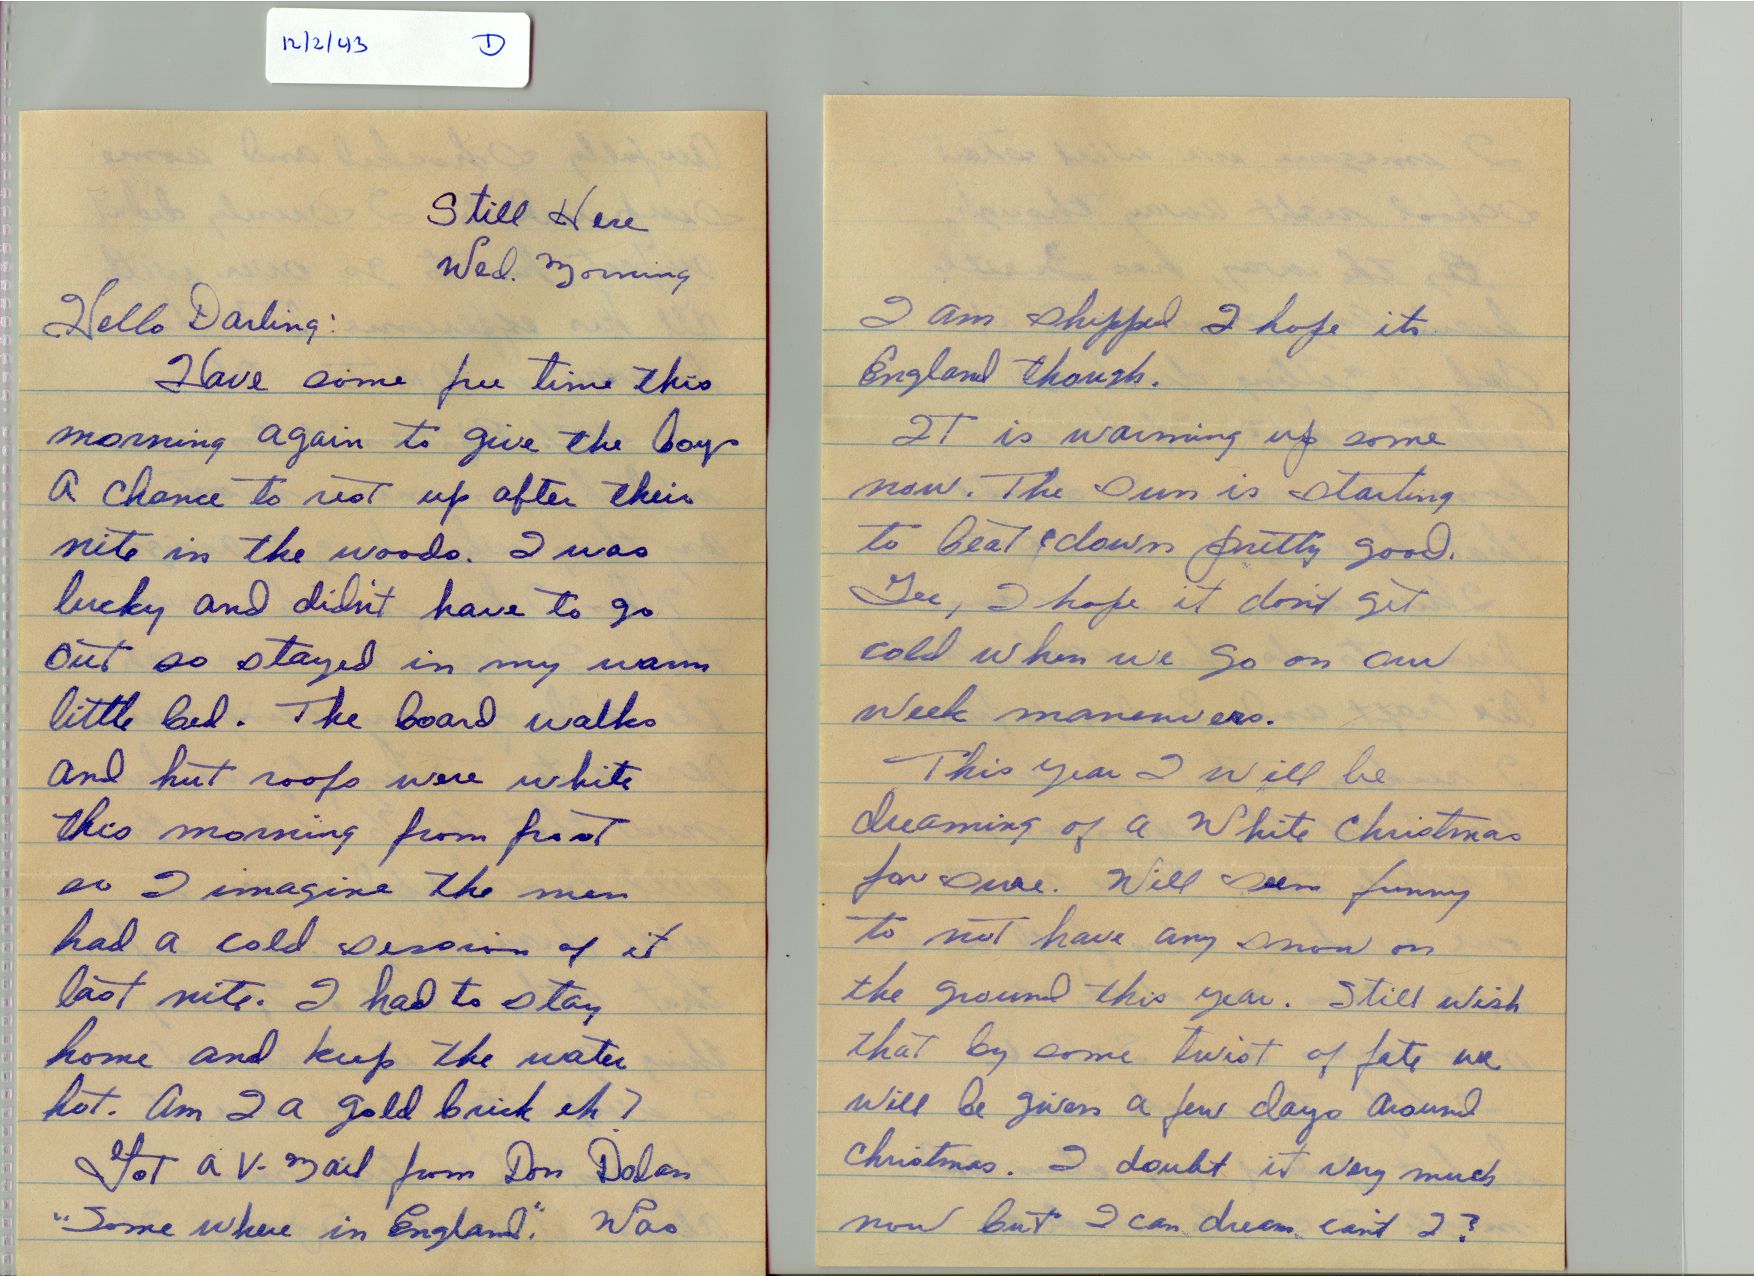 12/2/43 D
Still Here
Wed. Morning
Hello Darling:
Have some free time this
morning again to give the boys
a chance to rest up after their
nite in the woods. I was
lucky and didn't have to go
out so stayed in my warm
little bed. The board walks
and hut roofs were white
this morning from frost
so I imagine the men
had a cold session of it
last nite. I had to stay
home and keep the water
hot. Am I a gold brick eh?
Got a V-Mail from Don Dolan
"Some where in England". Was
I am shipped I hope its
England though.
It is warming up some
now. The sun is starting
to beat down pretty good.
Gee, I hope it don't get
cold when we go on our
week maneuvers.
This year I will be
dreaming of a White Christmas
for sure. Will seem funny
to not have any snow on
the ground this year. Still wish
that by some twist of fate we
will be given a few days around
Christmas. I doubt it very much
now but I can dream can't I?